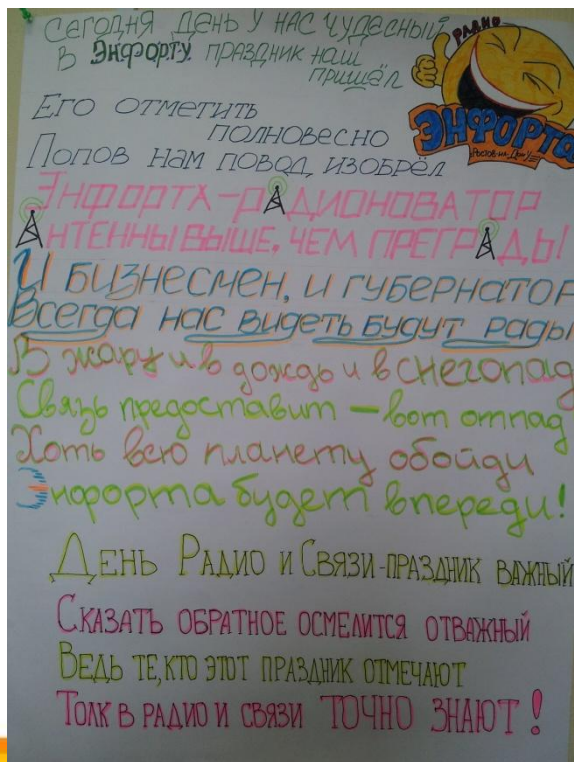 Сегодня день у нас чудесный
В Энфорту праздник наш
пришёл
РАДИО
ЭНФОРТА
Ростов-на-Дону
Его отметить
полновесно
Попов нам повод изобрёл
Энфорта-радионоватор
Антенны выше, чем преграды!
И бизнесмен, и губернатор
Всегда нас видеть будут рады
В жару и в дождь и в снегопад
Связь предоставит - вот отпад
Хоть всю планету обойди
Энфорта будет впереди!
День Радио и Связи-праздник важный
Сказать обратное осмелится отважный
Ведь те, кто этот праздник отмечают
Толк в радио и связи точно знают!